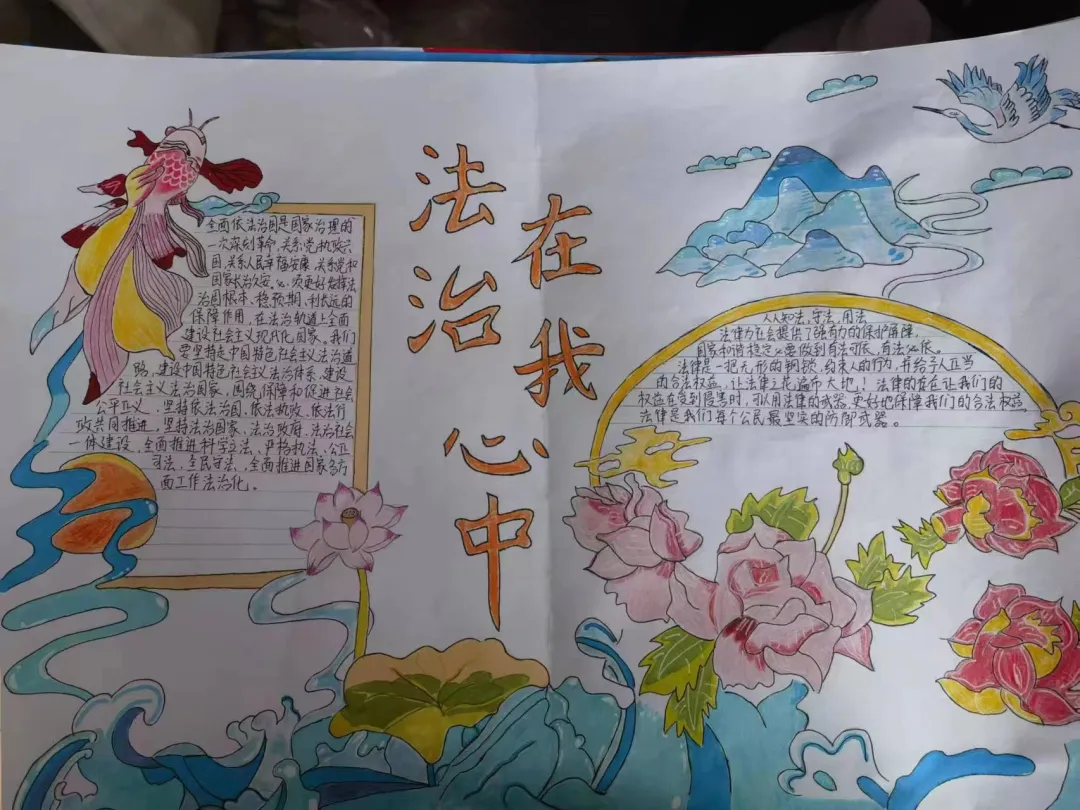 法治
在我
心中
全面依法治国是国家治理的
一次深刻革命,关系党执政兴
国,关系人民幸福安康,关系党和
国家长治久安。必须更好发挥法
治固根本、稳预期、利长远的
保障作用,在法治轨道上全面
建设社会主义现代化国家,我们
要坚持走中国特色社会主义法治道
路,建设中国特色社会主义法治体系、建设
社会主义法治国家,围绕保障和促进社会
公平正义,坚持依法治国、依法执政、依法行
政共同推进,坚持法治国家、法治政府、法治社会
一体建设,全面推进科学立法、严格执法、公正
司法、全民守法,全面推进国家各方
面工作法治化。
人人知法,守法,用法
法律为社会提供了强有力的保护屏障,
国家和谐稳定必要做到有法可依,有法必依。
法律是一把无形的钢锁,约束人的行为,并给予人正当
的合法权益,让法律之花,遍布大地!法律的存在让我们的
权益在受到侵害时,可以用法律的武器,更好地保障我们的合法权益,
法律是我们每个公民最坚实的防御武器。